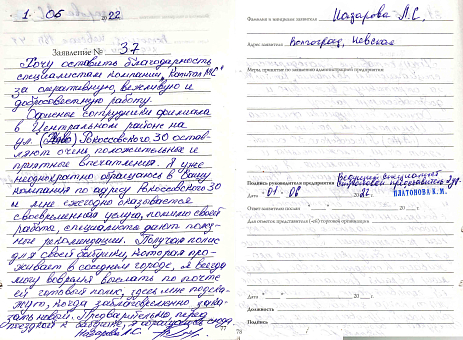 1. 06 22
Заявление № 37
Хочу оставить благодарность
специалистам компании "Капитал МС"
за оперативную, вежливую и
добросовестную работу.
Офисные сотрудники филиала
в Центральном районе на
ул. Рокоссовского 30 остав-
ляют очень положительные и
приятное впечатления. Я уже
неоднократно обращаюсь в Вашу
компанию по адресу Рокоссовского 30
и мне ежегодно оказывается
своевременная услуга, помимо своей
работы, специалисты дают полез-
ные рекомендации. Получая полис
для своей бабушки, которая про-
живает в соседнем городе, я всегда
могу вовремя выслать по почте
ей готовый полис, здесь мне подска-
жут, когда заблаговременно зака-
зать новый. Предварительно, перед
поездкой к бабушке, я обращаюсь сюда.
Назарова Л.С.
77
Фамилия и инициалы заявителя Назарова Л.С.
Адрес заявителя Волгоград, Невская
Меры, принятые по заявлению администрацией предприятия:
Ведущий специалист
Подпись руководителя предприятия
ПЛАТОНОВА К. М.
Дата «01» 06 22.
Ответ заявителю послан «
Для отметок представителя (-ей) торговой организации
Дата « » 20
Должность
Подпись
78